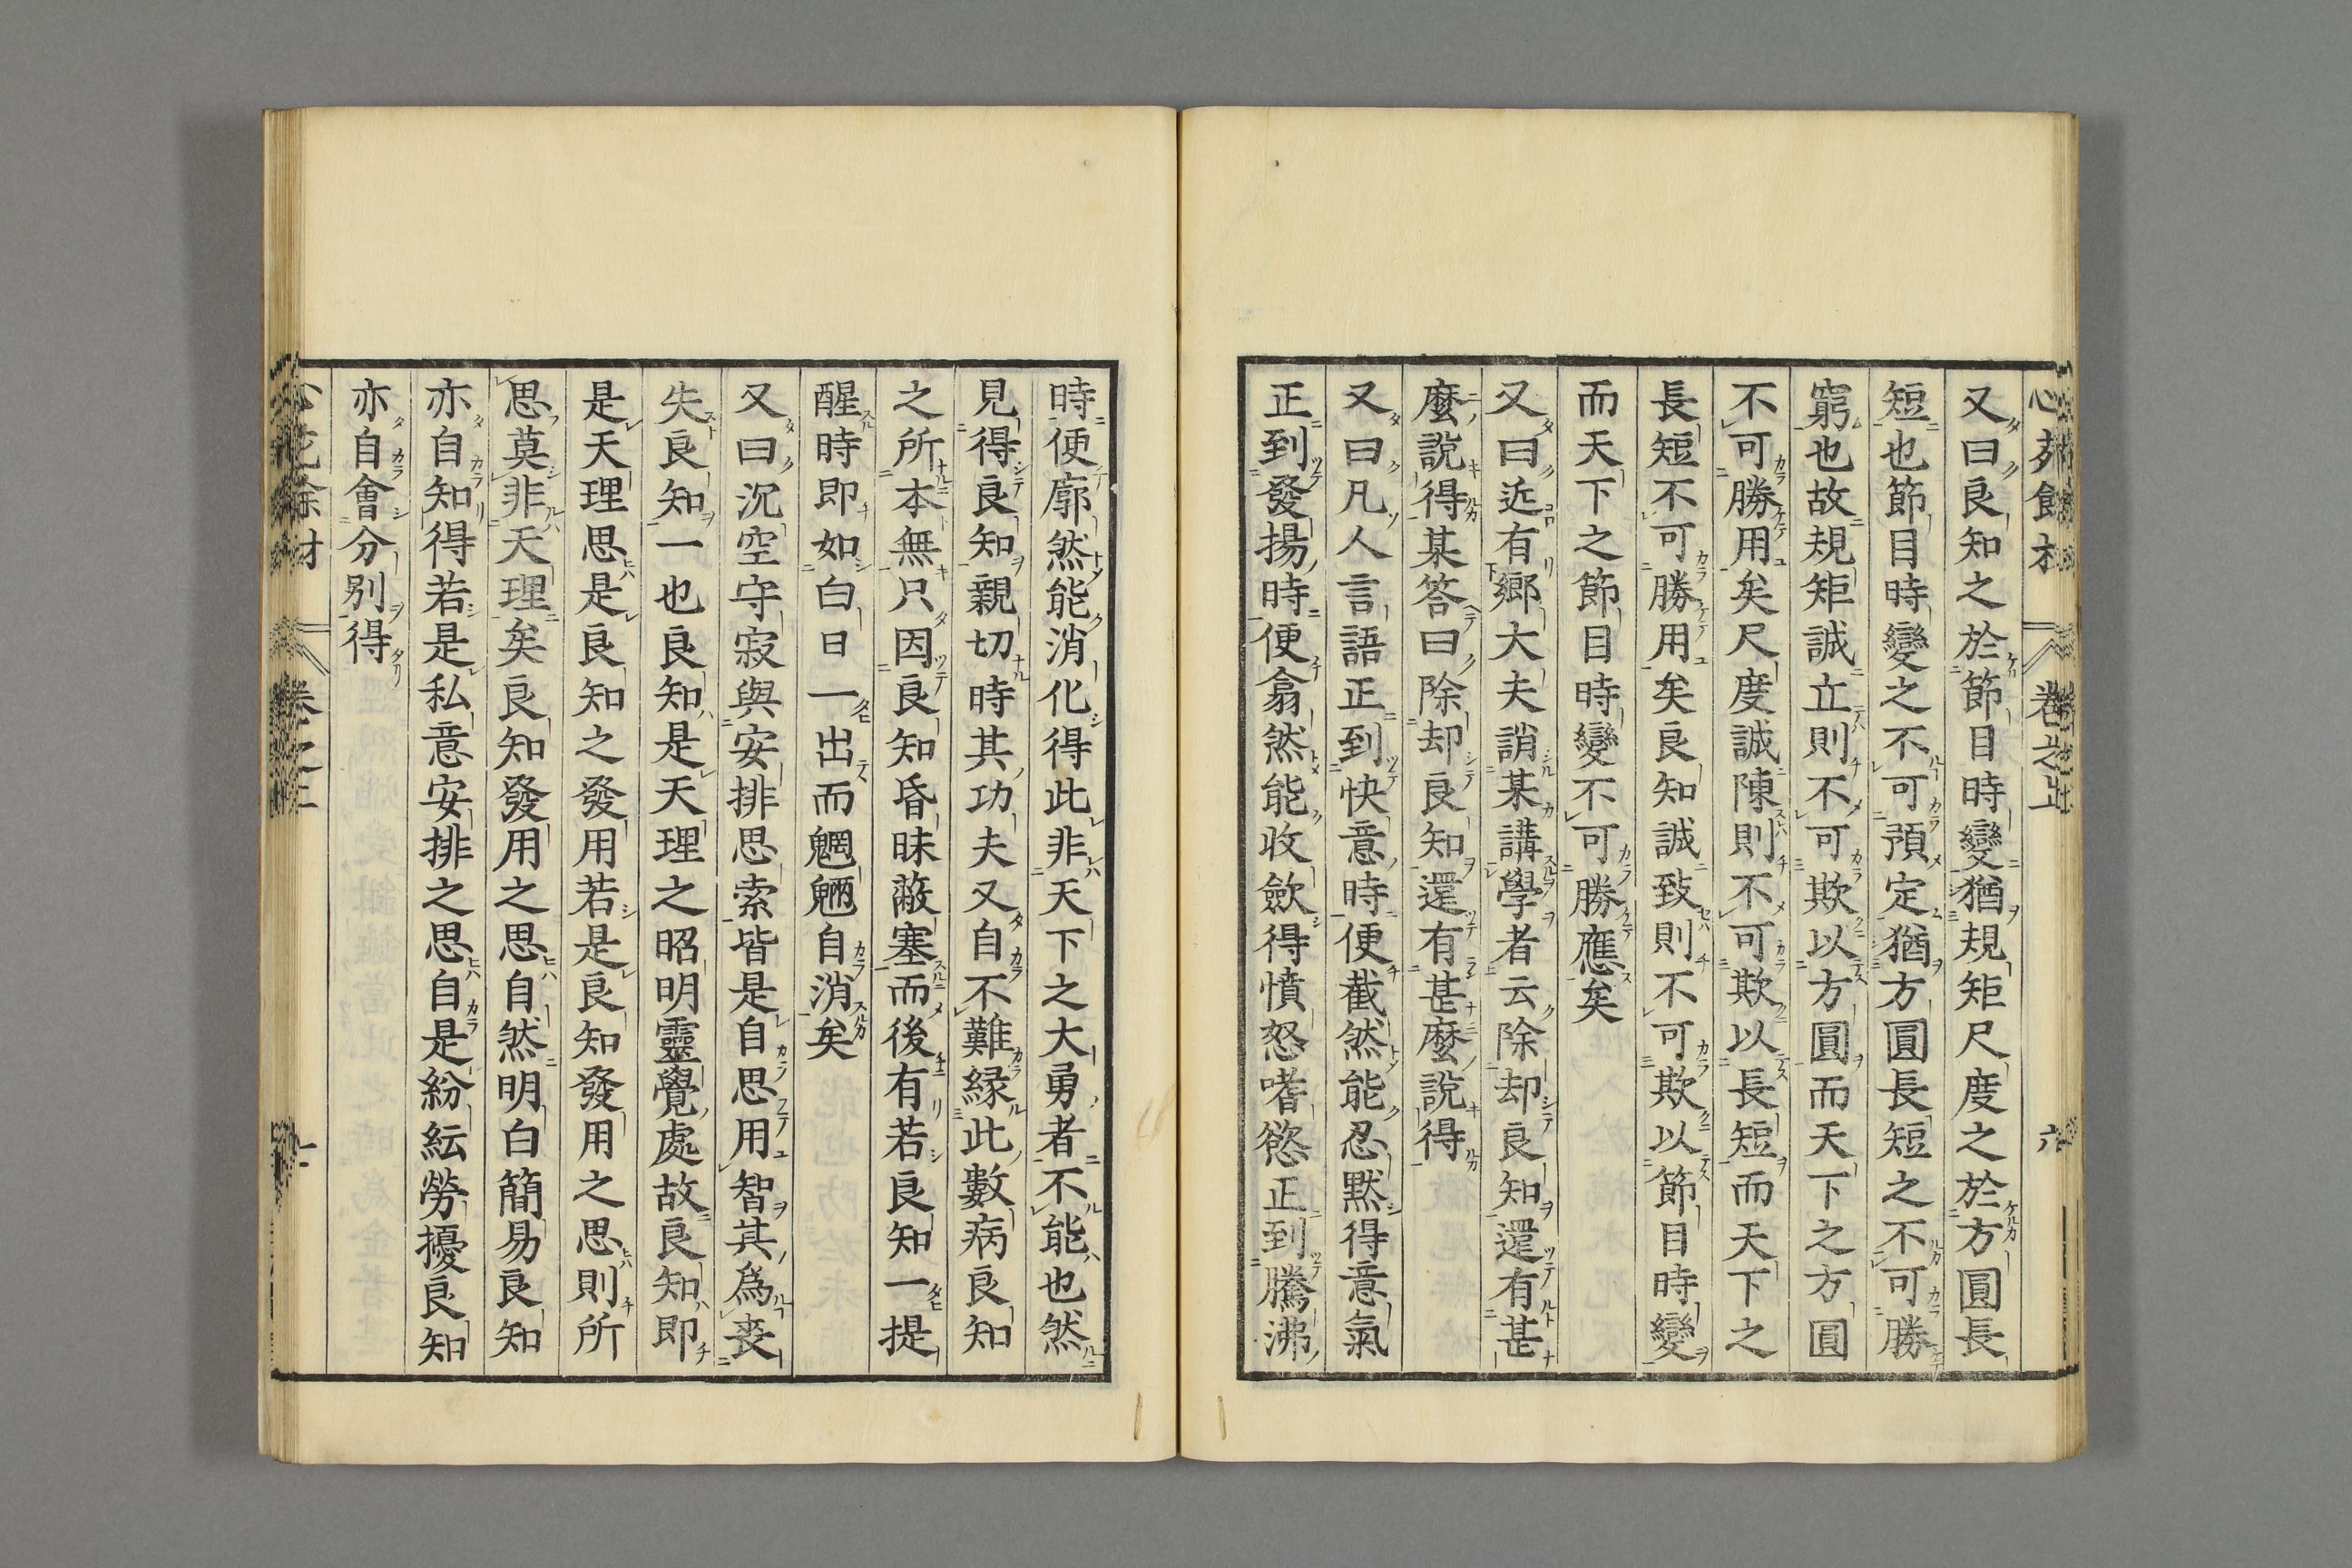 又曰良知之於節目時變猶規矩尺度之於方圓長
短也節目時變之不可預定猶方圓長短之不可勝
窮也故規矩誠立則不可欺以方圓而天下之方圓
不可勝用矣尺度誠陳則不可欺以長短而天下之
長短不可勝用矣良知誠致則不可欺以節目時變
而天下之節目時變不可勝應矣
又曰近有鄉大夫誚某講學者云除却良知還有甚
麼說得某答曰除却良知還有甚麼說得
又曰凡人言語正到快意時便截然能忍默得意氣
正到發揚時便翕然能收斂得憤怒嗜慾正到騰沸
時便廓然能消化得此非天下之大勇者不能也然
見得良知親切時其功夫又自不難緣此數病良知
之所本無只因良知昏昧蔽塞而後有若良知一提
醒時即如白日一出而魍魎自消矣
又曰沉空守寂與安排思索皆是自思用智其爲喪
失良知一也良知是天理之昭明靈覺處故良知即
是天理思是良知之發用若是良知發用之思則所
思莫非天理矣良知發用之思自然明白簡易良知
亦自知得若是私意安排之思自是紛紜勞擾良知
亦自會分別得